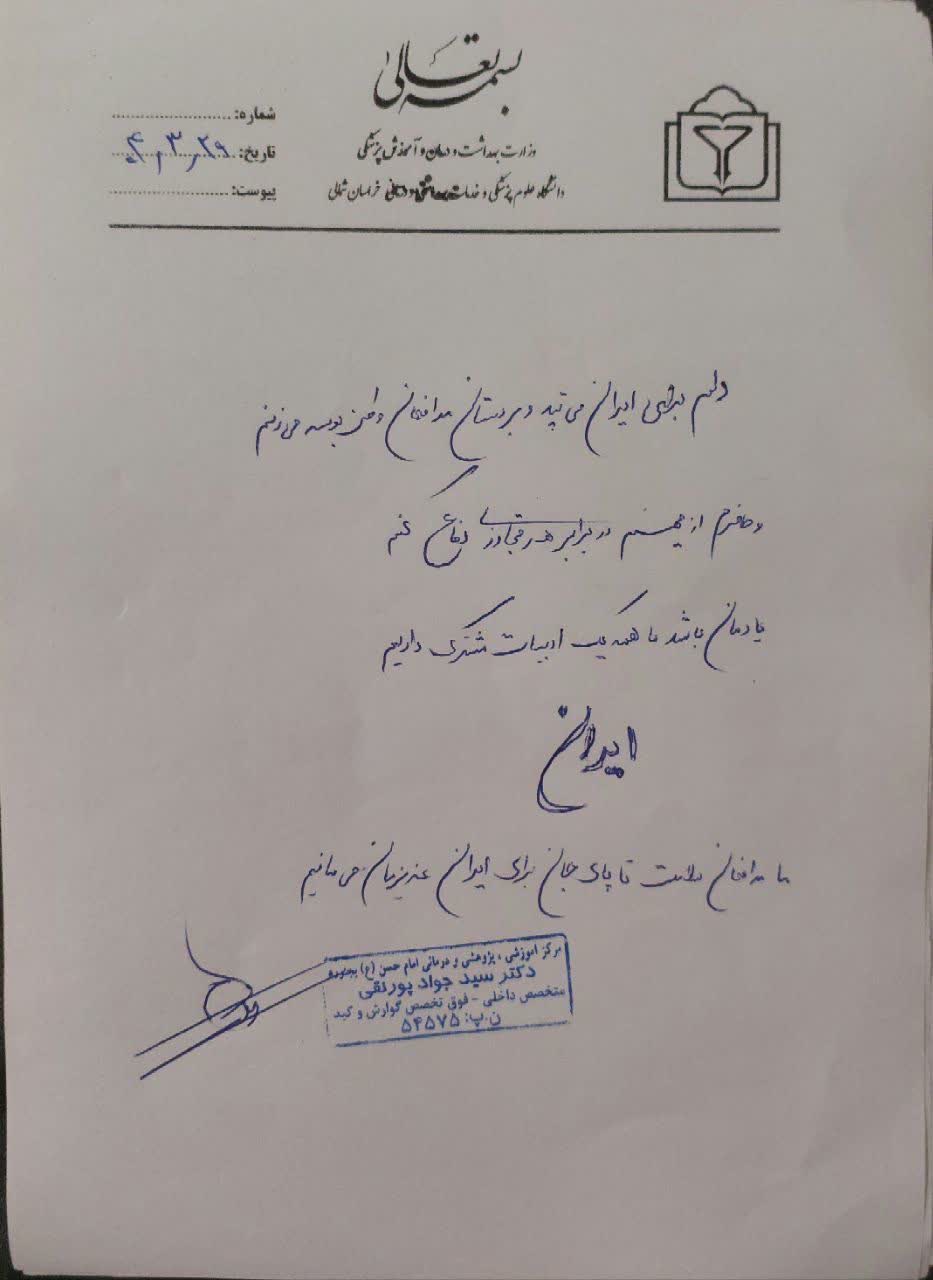 بسمه تعالی
وزارت بهداشت و درمان و آموزش پزشکی
دانشگاه علوم پزشکی و خدمات بهداشتی و درمانی خراسان شمالی
شماره:
تاریخ: ۰۴٫۳٫۲۹
پیوست:
دلم برای ایران می تپد و بر دستان مدافعان وطن بوسه می زنم
و حاضرم از میهنم در برابر هر تجاوزی دفاع کنم
یادمان باشد ما همه یک ادبیات مشترک داریم
ایران
ما مدافعان سلامت تا پای جان برای ایران عزیزمان می مانیم
مرکز آموزشی ، پژوهشی و درمانی امام حسن (ع) بجنورد
دکتر سید جواد پورنقی
متخصص داخلی - فوق تخصص گوارش و کبد
ن.پ: ۵۴۵۷۵